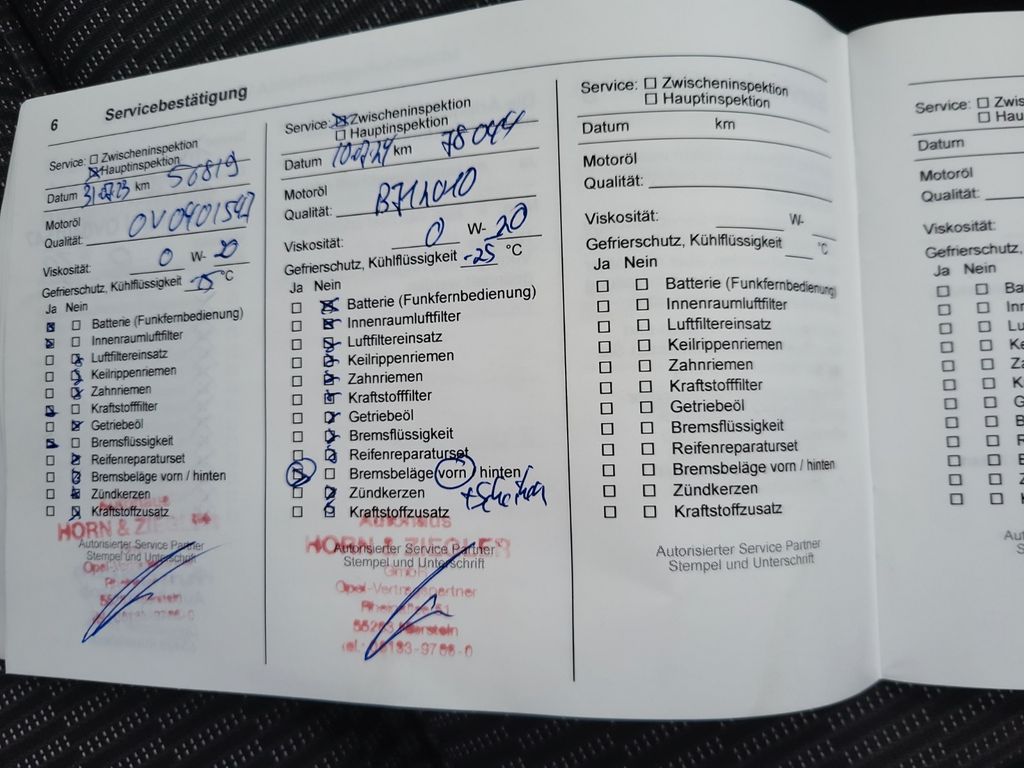 6 Servicebestätigung
Service: Zwischeninspektion
Hauptinspektion
Datum 31.07.23 km 56819
Motoröl
Qualität: OV0401547
Viskosität: 0 W- 20
Gefrierschutz, Kühlflüssigkeit -25 °C
Ja Nein
Batterie (Funkfernbedienung)
Innenraumluftfilter
Luftfiltereinsatz
Keilrippenriemen
Zahnriemen
Kraftstofffilter
Getriebeöl
Bremsflüssigkeit
Reifenreparaturset
Bremsbeläge vorn / hinten
Zündkerzen
Kraftstoffzusatz
HORN & ZIEGLER
Autorisierter Service Partner
Stempel und Unterschrift
Service: Zwischeninspektion
Hauptinspektion
Datum 10.07.24 km 78044
Motoröl
Qualität: B712010
Viskosität: 0 W- 20
Gefrierschutz, Kühlflüssigkeit -25 °C
Ja Nein
Batterie (Funkfernbedienung)
Innenraumluftfilter
Luftfiltereinsatz
Keilrippenriemen
Zahnriemen
Kraftstofffilter
Getriebeöl
Bremsflüssigkeit
Reifenreparaturset
Bremsbeläge vorn / hinten
+ Scheiben
Zündkerzen
Kraftstoffzusatz
Autohaus
HORN & ZIEGLER
Autorisierter Service Partner
Stempel und Unterschrift
GmbH
Opel-Vertragspartner
55283 Nierstein
Tel.: 06133-9766-0
Service: Zwischeninspektion
Hauptinspektion
Datum km
Motoröl
Qualität:
Viskosität: W-
Gefrierschutz, Kühlflüssigkeit °C
Ja Nein
Batterie (Funkfernbedienung)
Innenraumluftfilter
Luftfiltereinsatz
Keilrippenriemen
Zahnriemen
Kraftstofffilter
Getriebeöl
Bremsflüssigkeit
Reifenreparaturset
Bremsbeläge vorn / hinten
Zündkerzen
Kraftstoffzusatz
Autorisierter Service Partner
Stempel und Unterschrift
Service: Zwis
Hau
Datum
Motoröl
Qualität:
Viskosität:
Gefrierschutz,
Ja Nein
Ba
Inn
Lu
Ke
Za
K
G
B
R
B
Z
K
Au